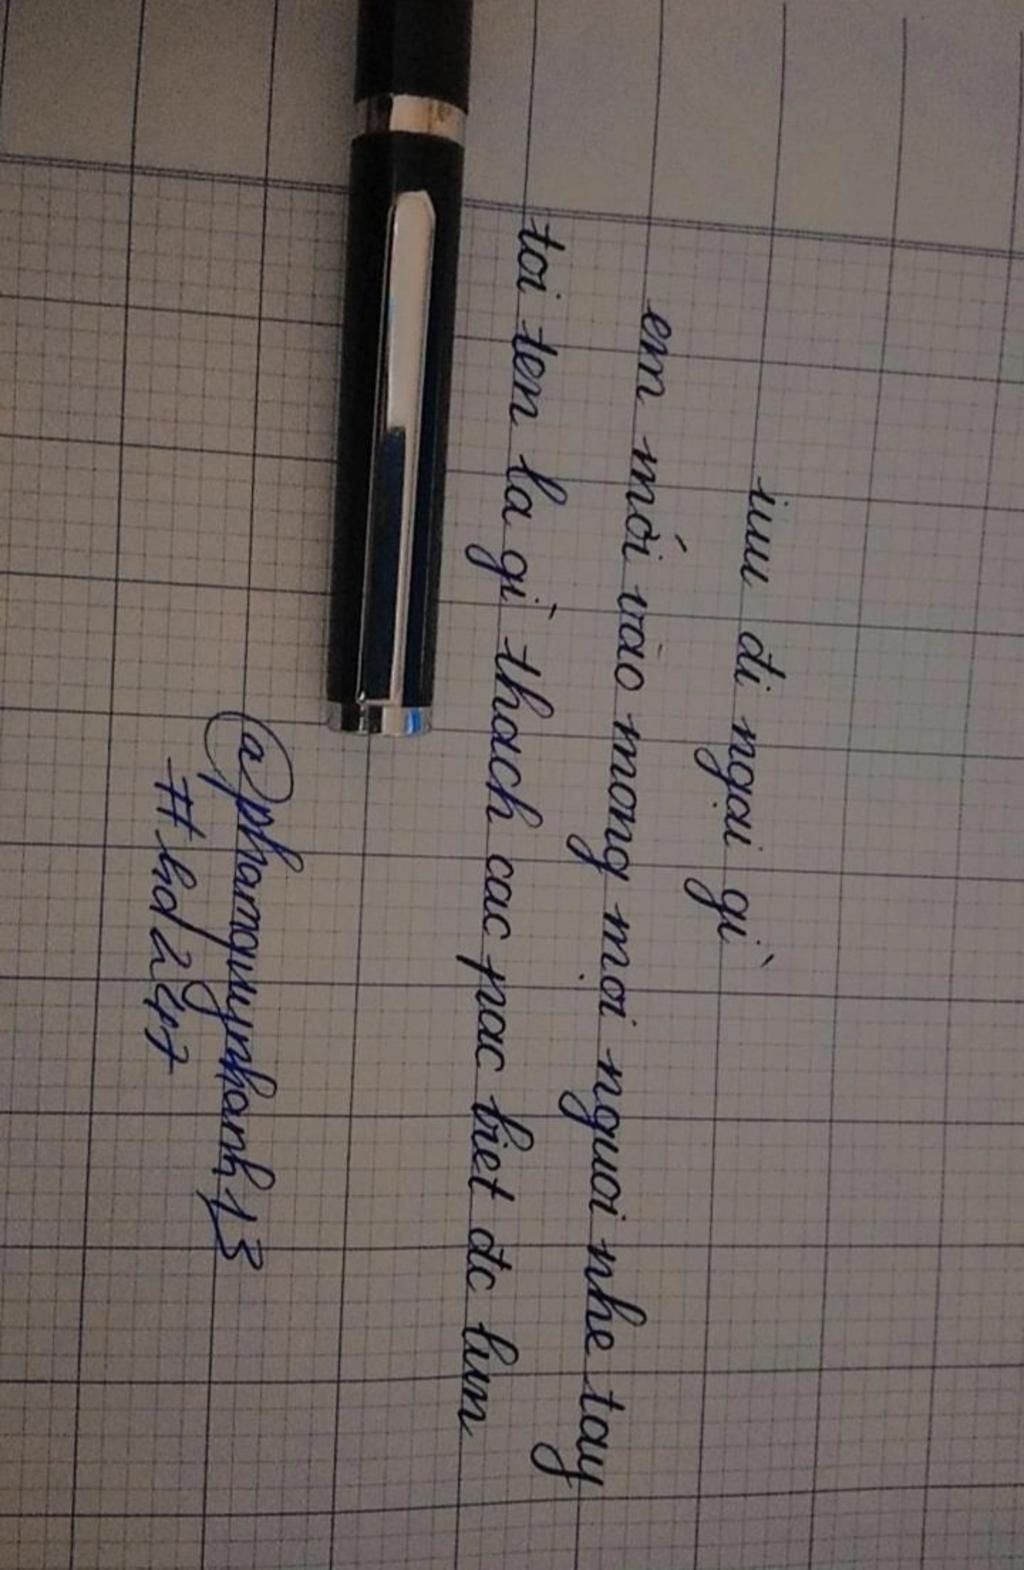 iuu đi ngại gì
em mới vào mong mọi nguoi nhe tay
toi ten la gì thach cac pac biet dc lun
@phamquynhanh13
#hd247